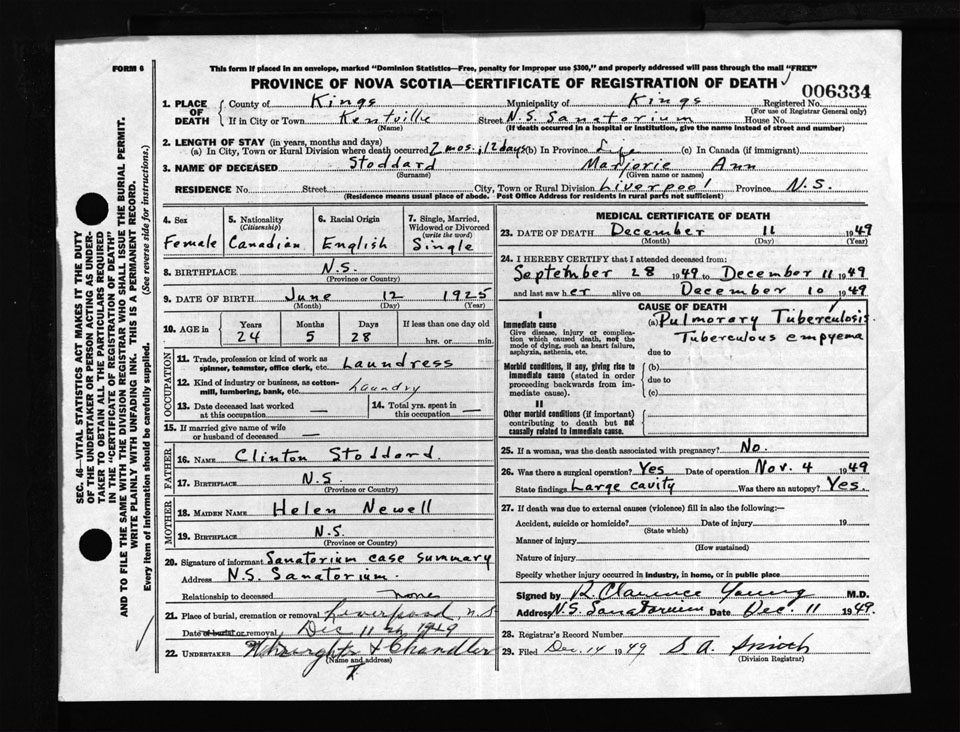 FORM 6
This form if placed in an envelope, marked "Dominion Statistics—Free, penalty for improper use $300," and properly addressed will pass through the mail "FREE"
PROVINCE OF NOVA SCOTIA—CERTIFICATE OF REGISTRATION OF DEATH
006334
1. PLACE OF DEATH
County of Kings Municipality of Kings Registered No.
(For use of Registrar General only)
If in City or Town Kentville Street N.S. Sanatorium House No.
(Name) (If death occurred in a hospital or institution, give the name instead of street and number)
2. LENGTH OF STAY (in years, months and days)
(a) In City, Town or Rural Division where death occurred 2 mos. 12 days (b) In Province Life (c) In Canada (if immigrant)
3. NAME OF DECEASED Stoddard Marjorie Ann
(Surname) (Given name or names)
RESIDENCE No. Street City, Town or Rural Division Liverpool Province N.S.
(Residence means usual place of abode. Post Office Address for residents in rural parts not sufficient)
4. Sex
Female
5. Nationality
(Citizenship)
Canadian
6. Racial Origin
English
7. Single, Married, Widowed or Divorced
(write the word)
Single
8. BIRTHPLACE N.S.
(Province or Country)
9. DATE OF BIRTH June 12 1925
(Month) (Day) (Year)
10. AGE in Years Months Days If less than one day old
24 5 28 hrs. or min.
OCCUPATION
11. Trade, profession or kind of work as
spinner, teamster, office clerk, etc. Laundress
12. Kind of industry or business, as cotton-
mill, lumbering, bank, etc. Laundry
13. Date deceased last worked
at this occupation —
14. Total yrs. spent in
this occupation —
15. If married give name of wife
or husband of deceased —
FATHER
16. NAME Clinton Stoddard.
17. BIRTHPLACE N.S.
(Province or Country)
MOTHER
18. MAIDEN NAME Helen Newell
19. BIRTHPLACE N.S.
(Province or Country)
20. Signature of informant Sanatorium case summary
Address N.S. Sanatorium.
Relationship to deceased none
21. Place of burial, cremation or removal Liverpool, N.S
Date of burial or removal, Dec 11th 1949
22. UNDERTAKER & Chandler
(Name and address)
MEDICAL CERTIFICATE OF DEATH
23. DATE OF DEATH December 11 1949
(Month) (Day) (Year)
24. I HEREBY CERTIFY that I attended deceased from:
September 28 1949 to December 11 1949
and last saw her alive on December 10 1949
CAUSE OF DEATH
I
Immediate cause
Give disease, injury or complication which caused death, not the mode of dying, such as heart failure, asphyxia, asthenia, etc.
(a) Pulmorary Tuberculosis.
Tuberculous empyema
due to
Morbid conditions, if any, giving rise to immediate cause (stated in order proceeding backwards from immediate cause).
(b)
due to
(c)
II
Other morbid conditions (if important) contributing to death but not causally related to immediate cause.
25. If a woman, was the death associated with pregnancy? No.
26. Was there a surgical operation? Yes Date of operation Nov. 4 1949
State findings Large cavity Was there an autopsy? Yes.
27. If death was due to external causes (violence) fill in also the following:—
Accident, suicide or homicide? Date of injury 19
(State which)
Manner of injury
(How sustained)
Nature of injury
Specify whether injury occurred in industry, in home, or in public place
Signed by R. Clarence Young M.D.
Address N.S. Sanatorium Date Dec. 11 1949.
28. Registrar's Record Number
29. Filed Dec. 14 1949 S. A.
(Division Registrar)
SEC. 46—VITAL STATISTICS ACT MAKES IT THE DUTY
OF THE UNDERTAKER OR PERSON ACTING AS UNDER-
TAKER TO OBTAIN ALL THE PARTICULARS REQUIRED
IN THE "CERTIFICATE OF REGISTRATION OF DEATH"
AND TO FILE THE SAME WITH THE DIVISION REGISTRAR WHO SHALL ISSUE THE BURIAL PERMIT.
WRITE PLAINLY WITH UNFADING INK. THIS IS A PERMANENT RECORD.
Every item of information should be carefully supplied. (See reverse side for instructions.)